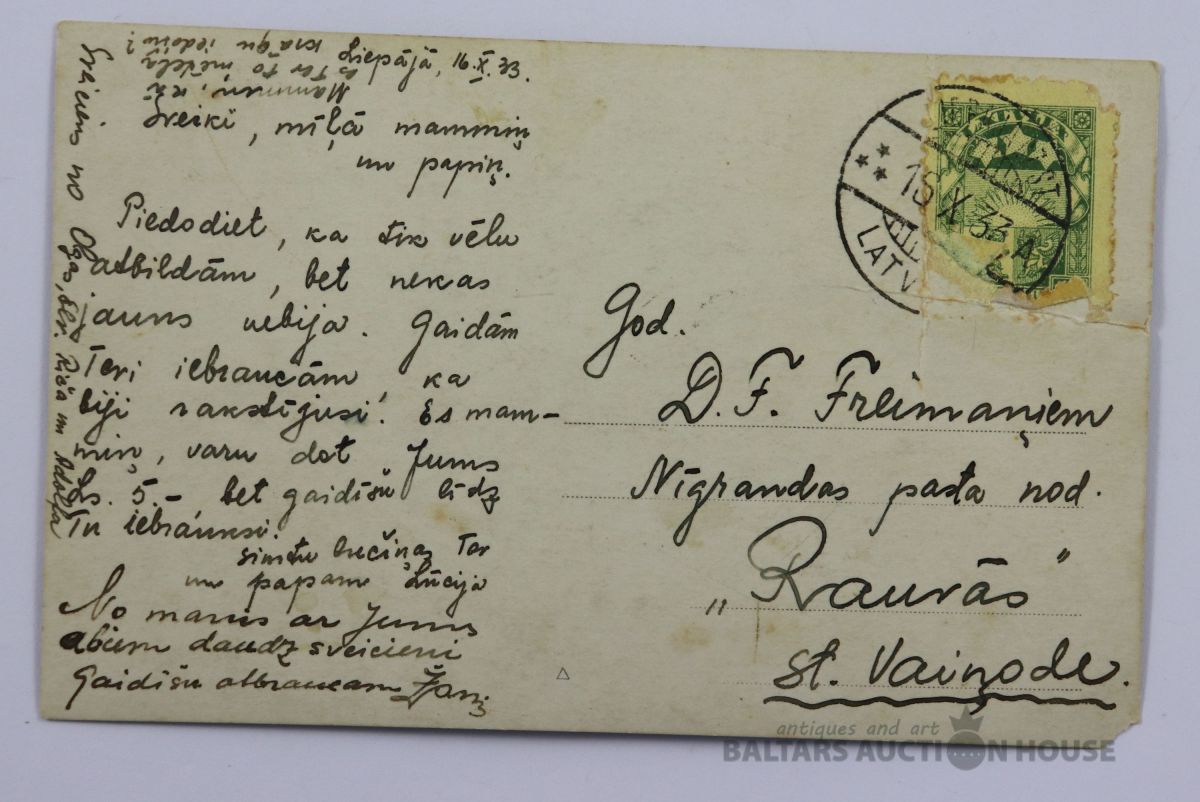 Liepājā, 16.X.33.
Mammiņ, už
to mēteli
Sveiki, mīļā mammiņ
un papiņ.
Piedodiet, ka tik vēlu
atbildām, bet nekas
jauns nebija. Gaidām
Tevi iebraucām, ka
biji rakstījusi! Es mam-
miņ, varu dot Jums
Ls. 5.- bet gaidīšu līdz
Tu iebrauksi.
simtu bučiņas Tev
un papam Lūcija
No manis ar Jums
abiem daudz sveicieni
Gaidīšu atbraucam Žanis
Sveiciens no Olgas,
un Adolfa
God.
D. F. Freimaņiem
Nīgrandas pasta nod.
„Rauvās"
st. Vaiņode.
LATVIJA
15 X 33 A
LATV
antiques and art
BALTARS AUCTION HOUSE